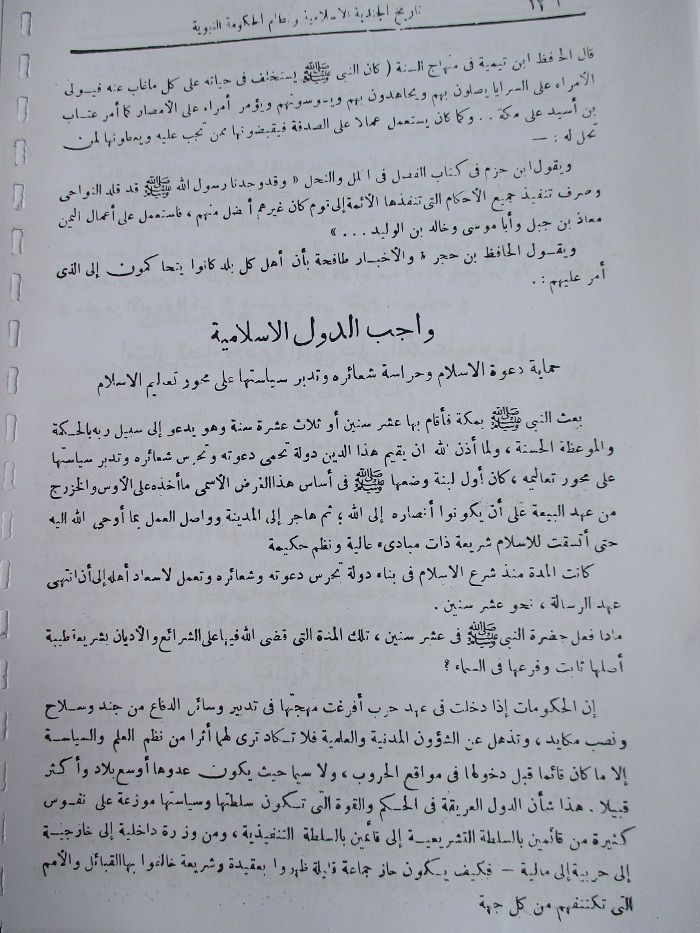 تاريخ الجندية الاسلامية ونظام الحكومة النبوية
١٣١
قال الحافظ ابن تيمية فى منهاج السنة ( كان النبى ﷺ يستخلف فى حياته على كل ماغاب عنه فيولى
الأمراء على السرايا يصلون بهم ويجاهدون بهم ويسوسونهم ويؤمر أمراء على الأمصار كما أمر عتاب
بن أسيد على مكة . . وكما كان يستعمل عمالا على الصدقة فيقبضونها ممن تجب عليه ويعطونها لمن
تحل له : —
ويقول ابن حزم فى كتاب الفصل فى الملل والنحل « وقد وجدنا رسول الله ﷺ قد قلد النواحى
وصرف تنفيذ جميع الأحكام التى تنفذها الأئمة إلى قوم كان غيرهم أفضل منهم ، فاستعمل على أعمال اليمن
معاذ بن جبل وأبا موسى وخالد بن الوليد . . . »
ويقول الحافظ بن حجر « والأخبار طافحة بأن أهل كل بلد كانوا يتحاكمون إلى الذى
أمر عليهم : .
واجب الدول الاسلامية
حماية دعوة الاسلام وحراسة شعائره وتدبر سياستها على محور تعاليم الاسلام
بعث النبى ﷺ بمكة فأقام بها عشر سنين أو ثلاث عشرة سنة وهو يدعو إلى سبيل ربه بالحكمة
والموعظة الحسنة ، ولما أذن الله ان يقيم هذا الدين دولة تحمى دعوته وتحرس شعائره وتدبر سياستها
على محور تعاليمه ، كان أول لبنة وضعها ﷺ فى أساس هذا الغرض الأسمى ما أخذه على الأوس والخزرج
من عهد البيعة على أن يكونوا أنصاره إلى الله ؛ ثم هاجر إلى المدينة وواصل العمل بما أوحى الله اليه
حتى أتسقت للاسلام شريعة ذات مبادىء عالية ونظم حكيمة
كانت المدة منذ شرع الاسلام فى بناء دولة تحرس دعوته وشعائره وتعمل لاسعاد أهله إلى أن انتهى
عهد الرسالة ، نحو عشر سنين .
ماذا فعل حضرة النبى ﷺ فى عشر سنين ، تلك المدة التى قضى الله فيها على الشرائع والأديان بشريعة طيبة
أصلها ثابت وفرعها فى السماء ؟
إن الحكومات إذا دخلت فى عهد حرب أفرغت مهجتها فى تدبير وسائل الدفاع من جند وسلاح
ونصب مكايد ، وتذهل عن الشؤون المدنية والعلمية فلا تكاد ترى لهما أثرا من نظم العلم والسياسة
إلا ما كان قائما قبل دخولها فى مواقع الحروب ، ولا سيما حيث يكون عدوها أوسع بلاد وأكثر
قبيلا . هذا شأن الدول العريقة فى الحكم والقوة التى تكون سلطتها وسياستها موزعة على نفوس
كثيرة من قائمين بالسلطة التشريعية إلى قائمين بالسلطة التنفيذية ، ومن وزرة داخلية إلى خارجية
إلى حربية إلى مالية – فكيف يكون حال جماعة قليلة ظهروا بعقيدة وشريعة خالفوا بها القبائل والأمم
التى تكتنفهم من كل جهة